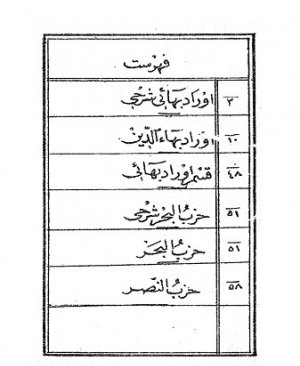 فهرست
٣ اوراد بهائی شرحی
١٠ اوراد بهاء الدین
٤٨ قسم اوراد بهائی
٥١ حزب البحر شرحی
٥٦ حزب البحر
٥٨ حزب النصر